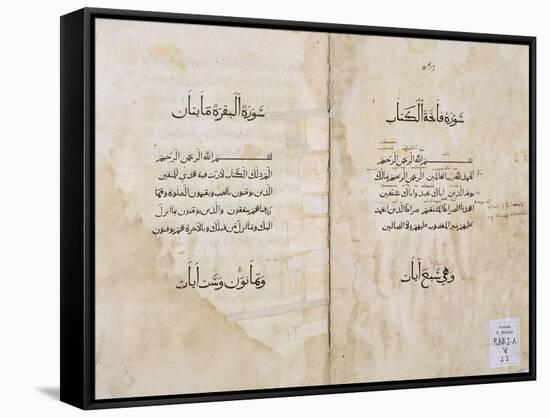 سورة فاتحة الكتاب
بسم الله الرحمن الرحيم
الحمد لله رب العالمين الرحمن الرحيم مالك
يوم الدين اياك نعبد واياك نستعين
اهدنا الصراط المستقيم صراط الذين انعمت
عليهم غير المغضوب عليهم ولا الضالين
وهي سبع أيات
سورة البقرة مايتان
بسم الله الرحمن الرحيم
الم ذلك الكتاب لاريب فيه هدى للمتقين
الذين يومنون بالغيب ويقيمون الصلوة ومما
رزقناهم ينفقون والذين يومنون بما انزل
اليك وما انزل من قبلك وبالاخرة هم يوقنون
وثمانون وست أيات
Venezia
S. Michele
RARI-A
V